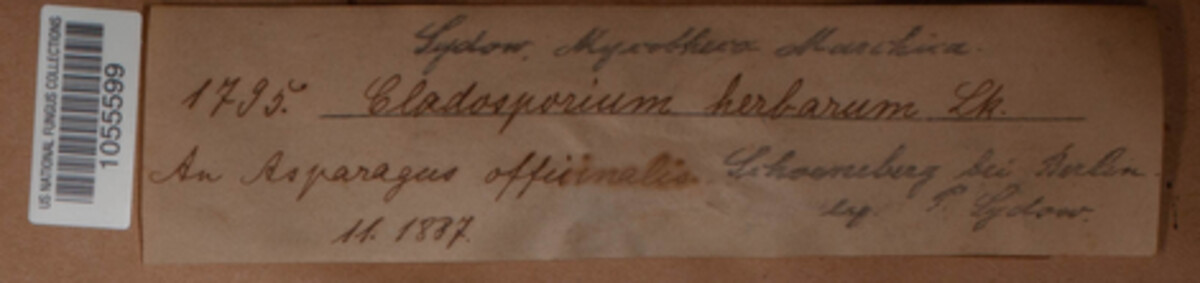 US NATIONAL FUNGUS COLLECTIONS
1055599
Sydow, Mycotheca Marchica.
1795. Cladosporium herbarum Lk.
An Asparagus officinalis. Schoeneberg bei Berlin.
11. 1887. leg. P. Sydow.